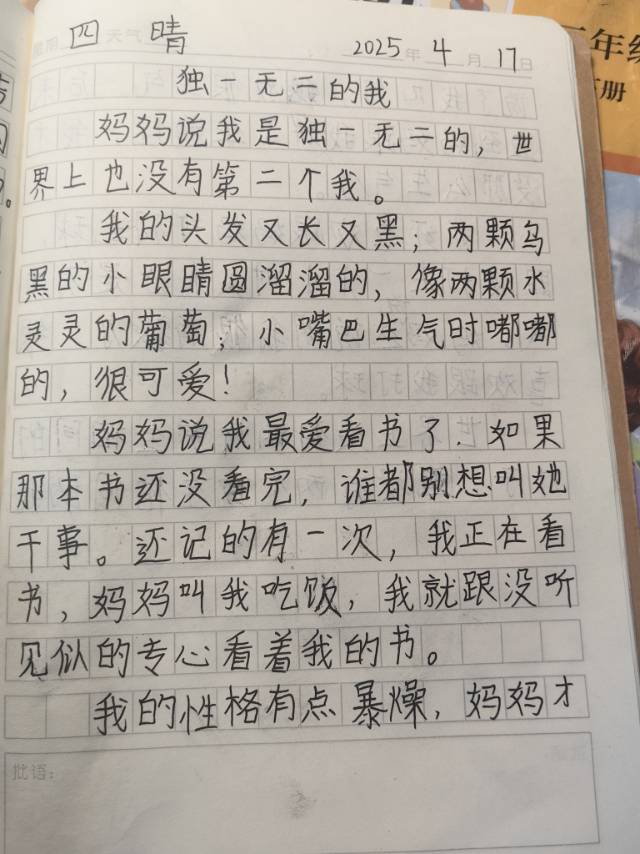 星期 四 天气 晴 2025年 4月 17日
独一无二的我
妈妈说我是独一无二的，世
界上也没有第二个我。
我的头发又长又黑；两颗乌
黑的小眼睛圆溜溜的，像两颗水
灵灵的葡萄；小嘴巴生气时嘟嘟
的，很可爱！
妈妈说我最爱看书了．如果
那本书还没看完，谁都别想叫她
干事。还记的有一次，我正在看
书，妈妈叫我吃饭，我就跟没听
见似的专心看着我的书。
我的性格有点暴燥，妈妈才
批语：
年级
册